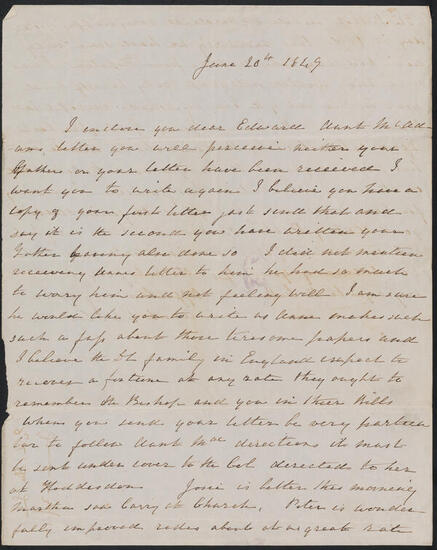 June 20th 1849
I enclose you dear Edward Aunt McAd-
ams letter you will perceive neither your
Fathers or your letter have been received I
want you to write again I believe you have a
copy of your first letter just send that and
say it is the second you have written your
Father having also done so I did not mention
receiving letter to him he had so much
to worry him and not feeling well I am sure
he would like you to write as makes such
such a fuss about those tiresome papers and
I believe the family in England expect to
recover a fortune at any rate they ought to
remember the Bishop and you in their Wills
When you send your letter be very particu
lar to follow Aunt Mc directions it must
be sent under cover to the Col directed to her
at Hoddesdon Josie is better this morning
Martha saw Carry at Church. Peter is wonder
fully improved rides about at a great rate